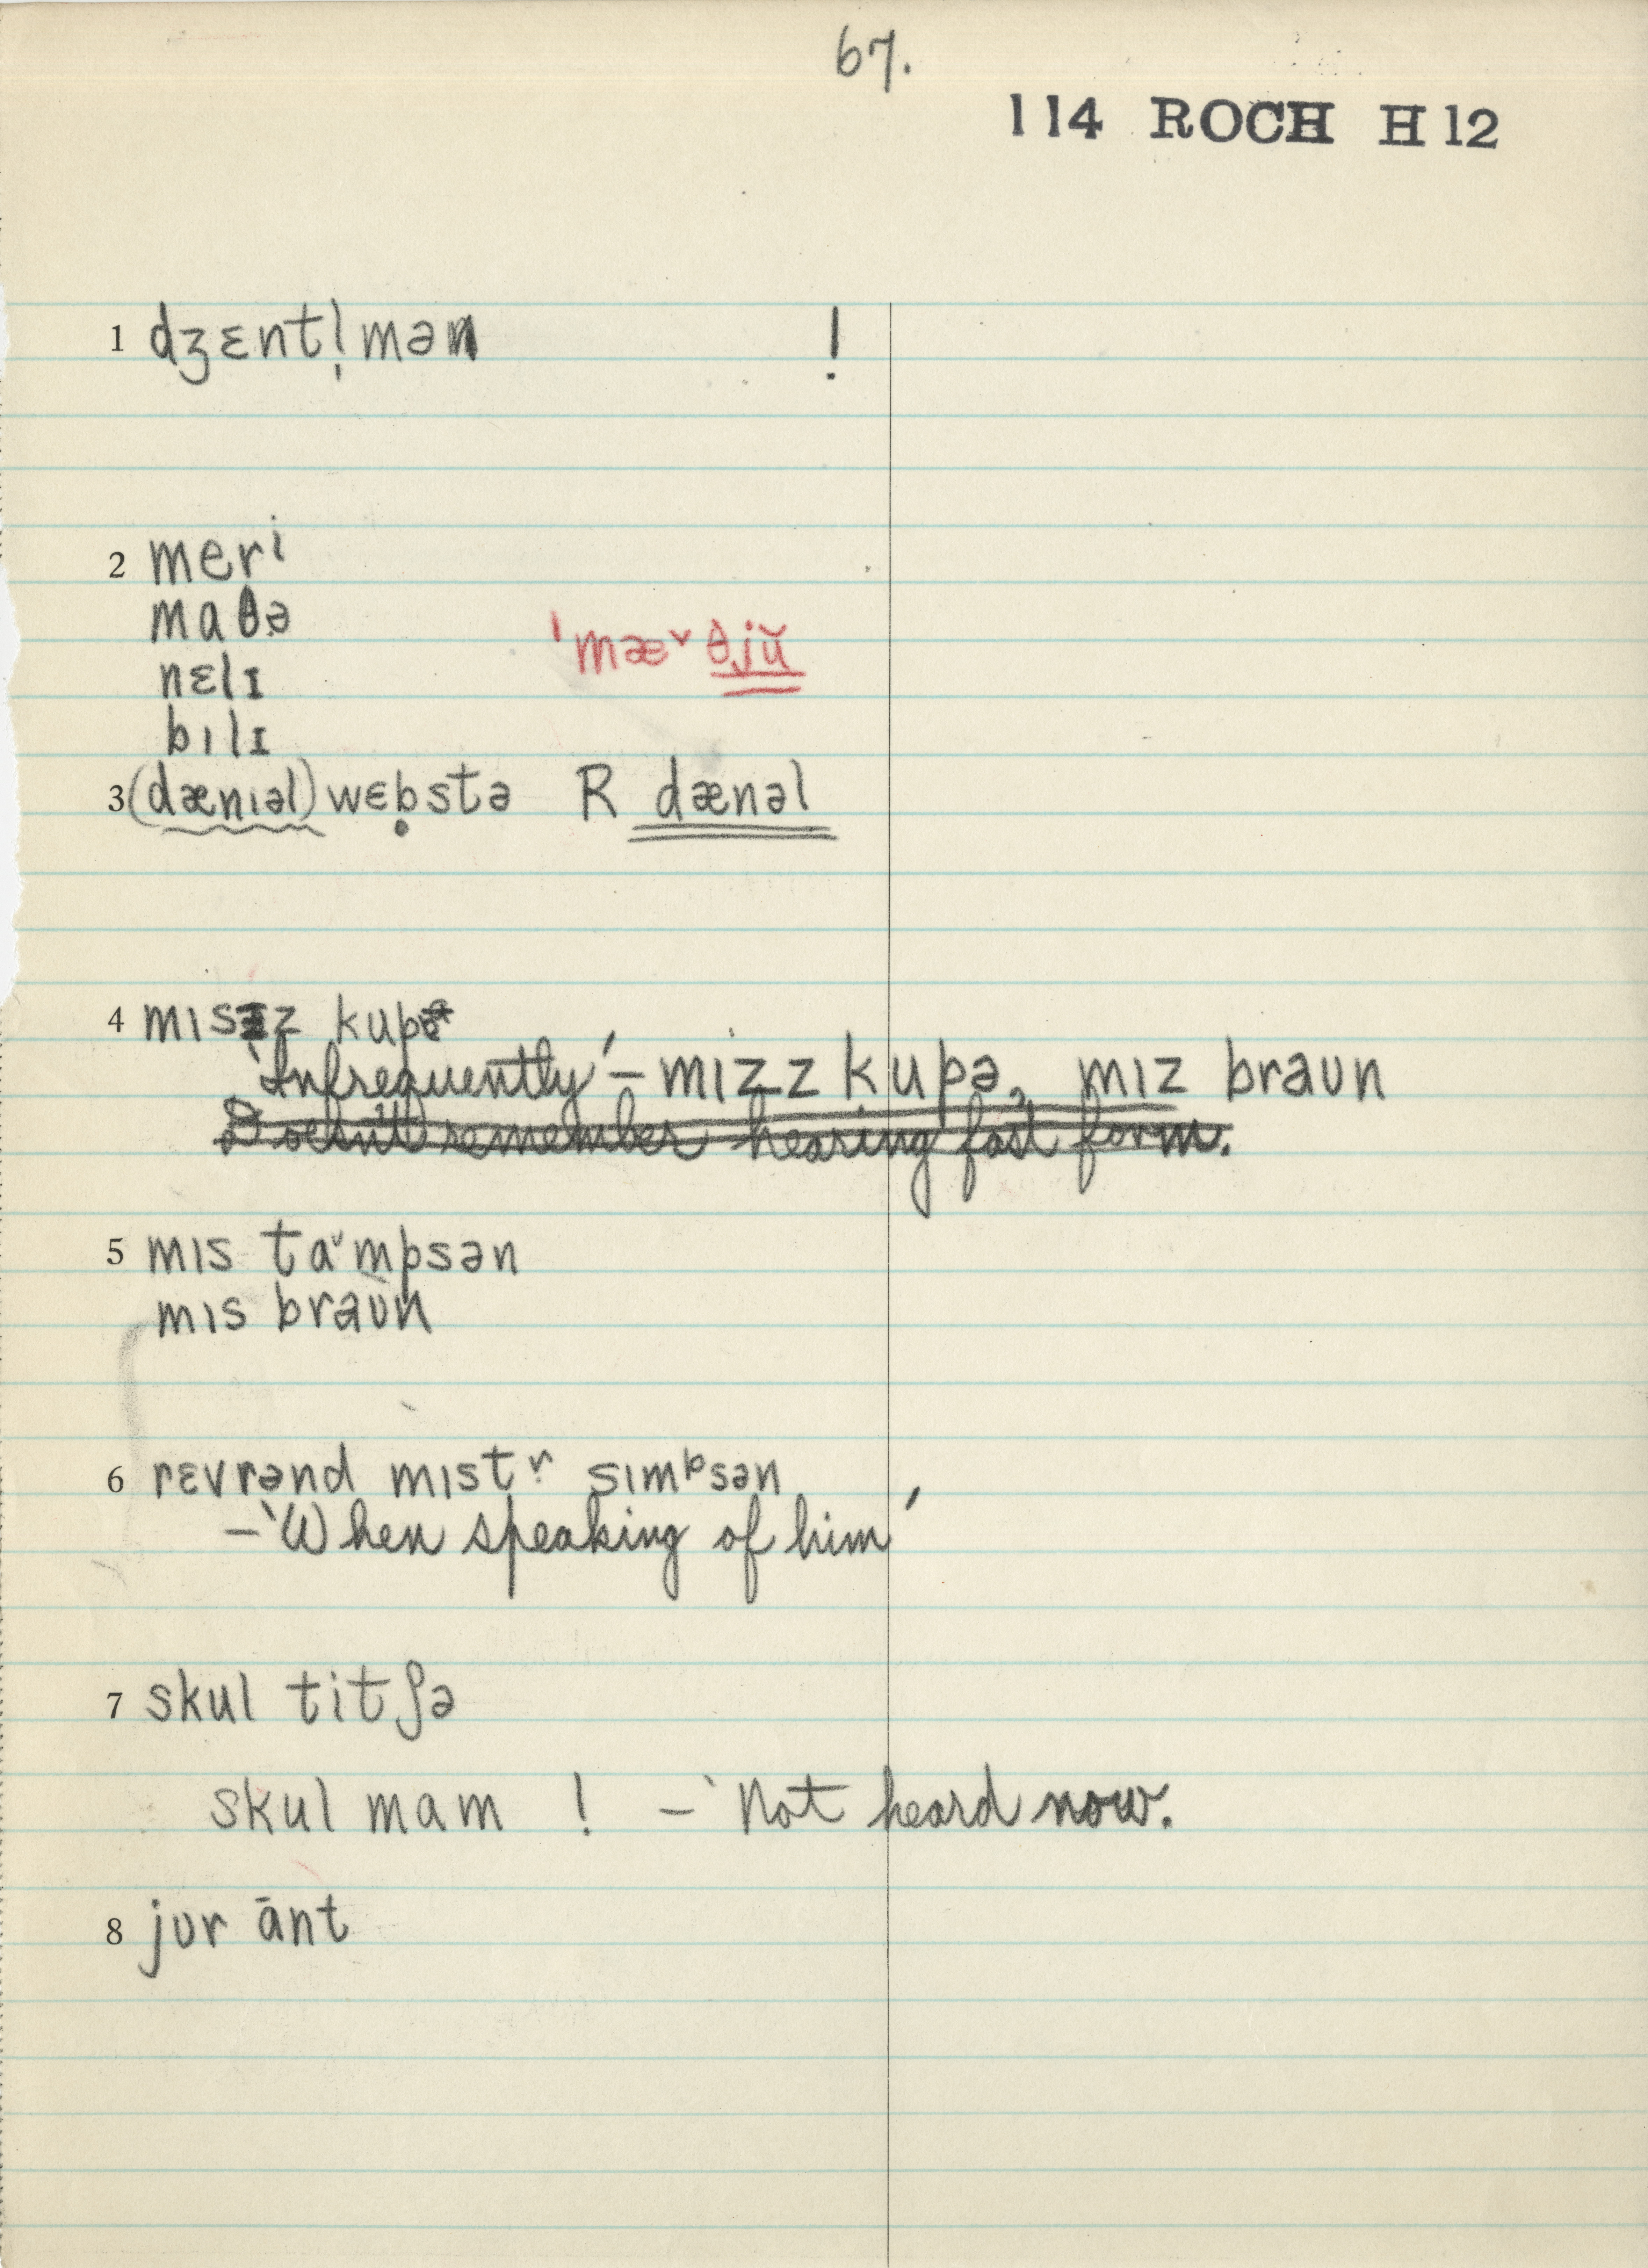 67.
114 ROCH H 12
1 dʒɛntl̩mən !
2 merɨ
maθə
ˈmæ˅ θjŭ
nɛlɪ
bɪlɪ
3 (dænɪəl) wɛb̥stə R dænəl
4 mɪsɪz kupə
‘Infrequently’ – mɪzz kupə, mɪz braʊn
Doesn't remember hearing fast form.
5 mɪs ta˅mpsən
mɪs braʊn
6 rɛvrənd mɪstɚ sɪmᵖsən
– ‘When speaking of him’
7 skul titʃə
skul mam ! – ‘Not heard now.
8 jʊr ānt